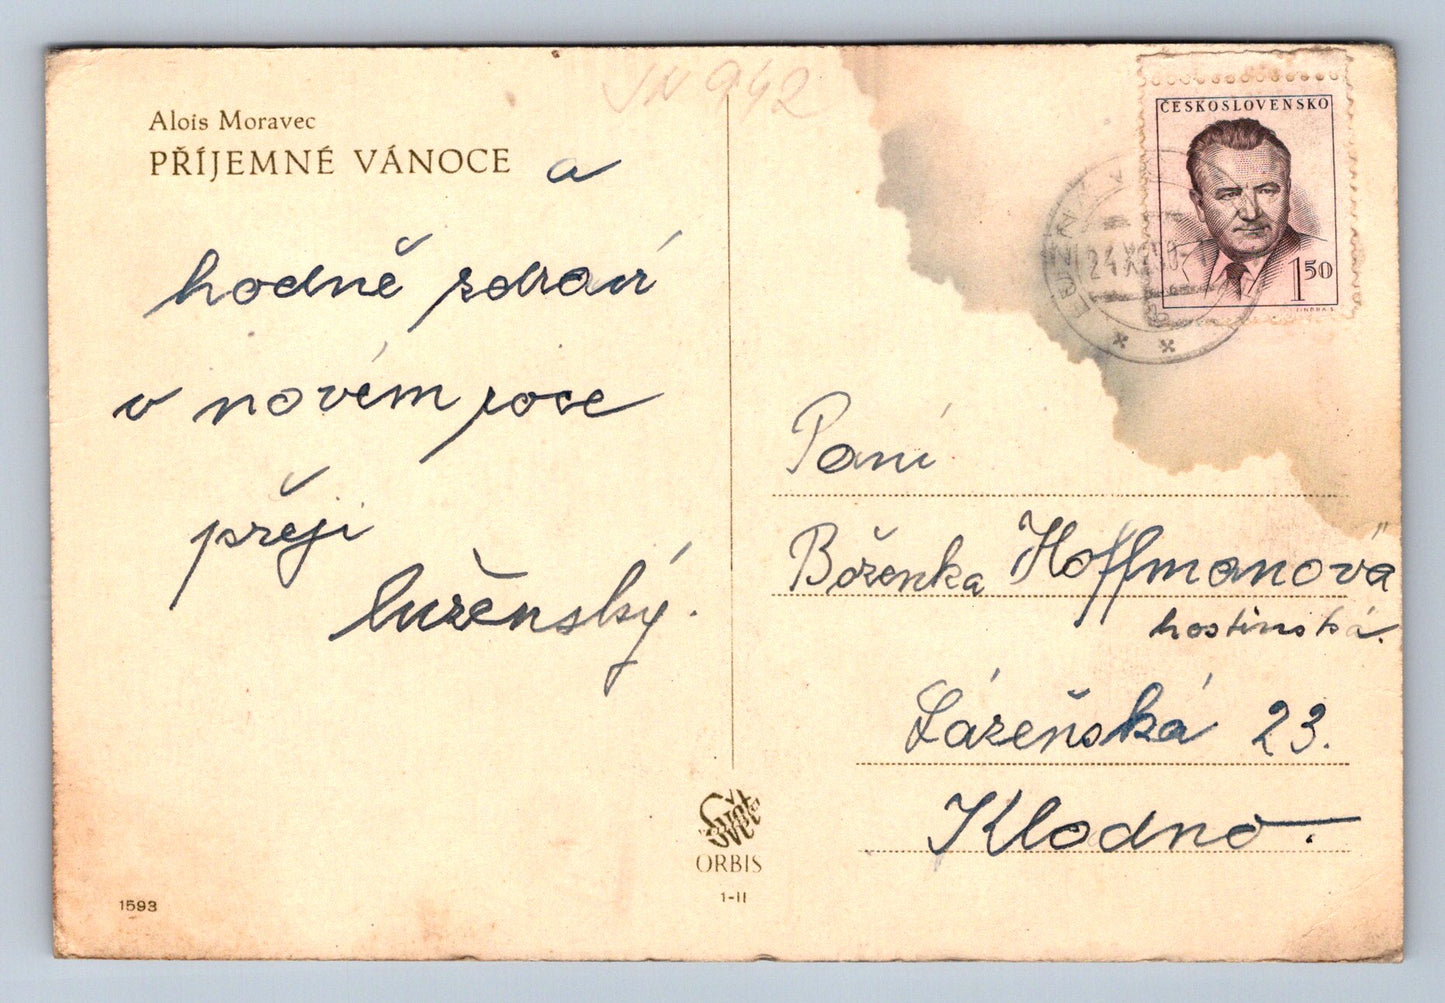 JN 942
Alois Moravec
PŘÍJEMNÉ VÁNOCE a
hodně zdraví
v novém roce
přeji
luženský.
ČESKOSLOVENSKO
1 50
24 XII 50
Paní
Boženka Hoffmanová
hostinská.
Lázeňská 23.
Kladno.
SVĚT
ORBIS
1-II
1593